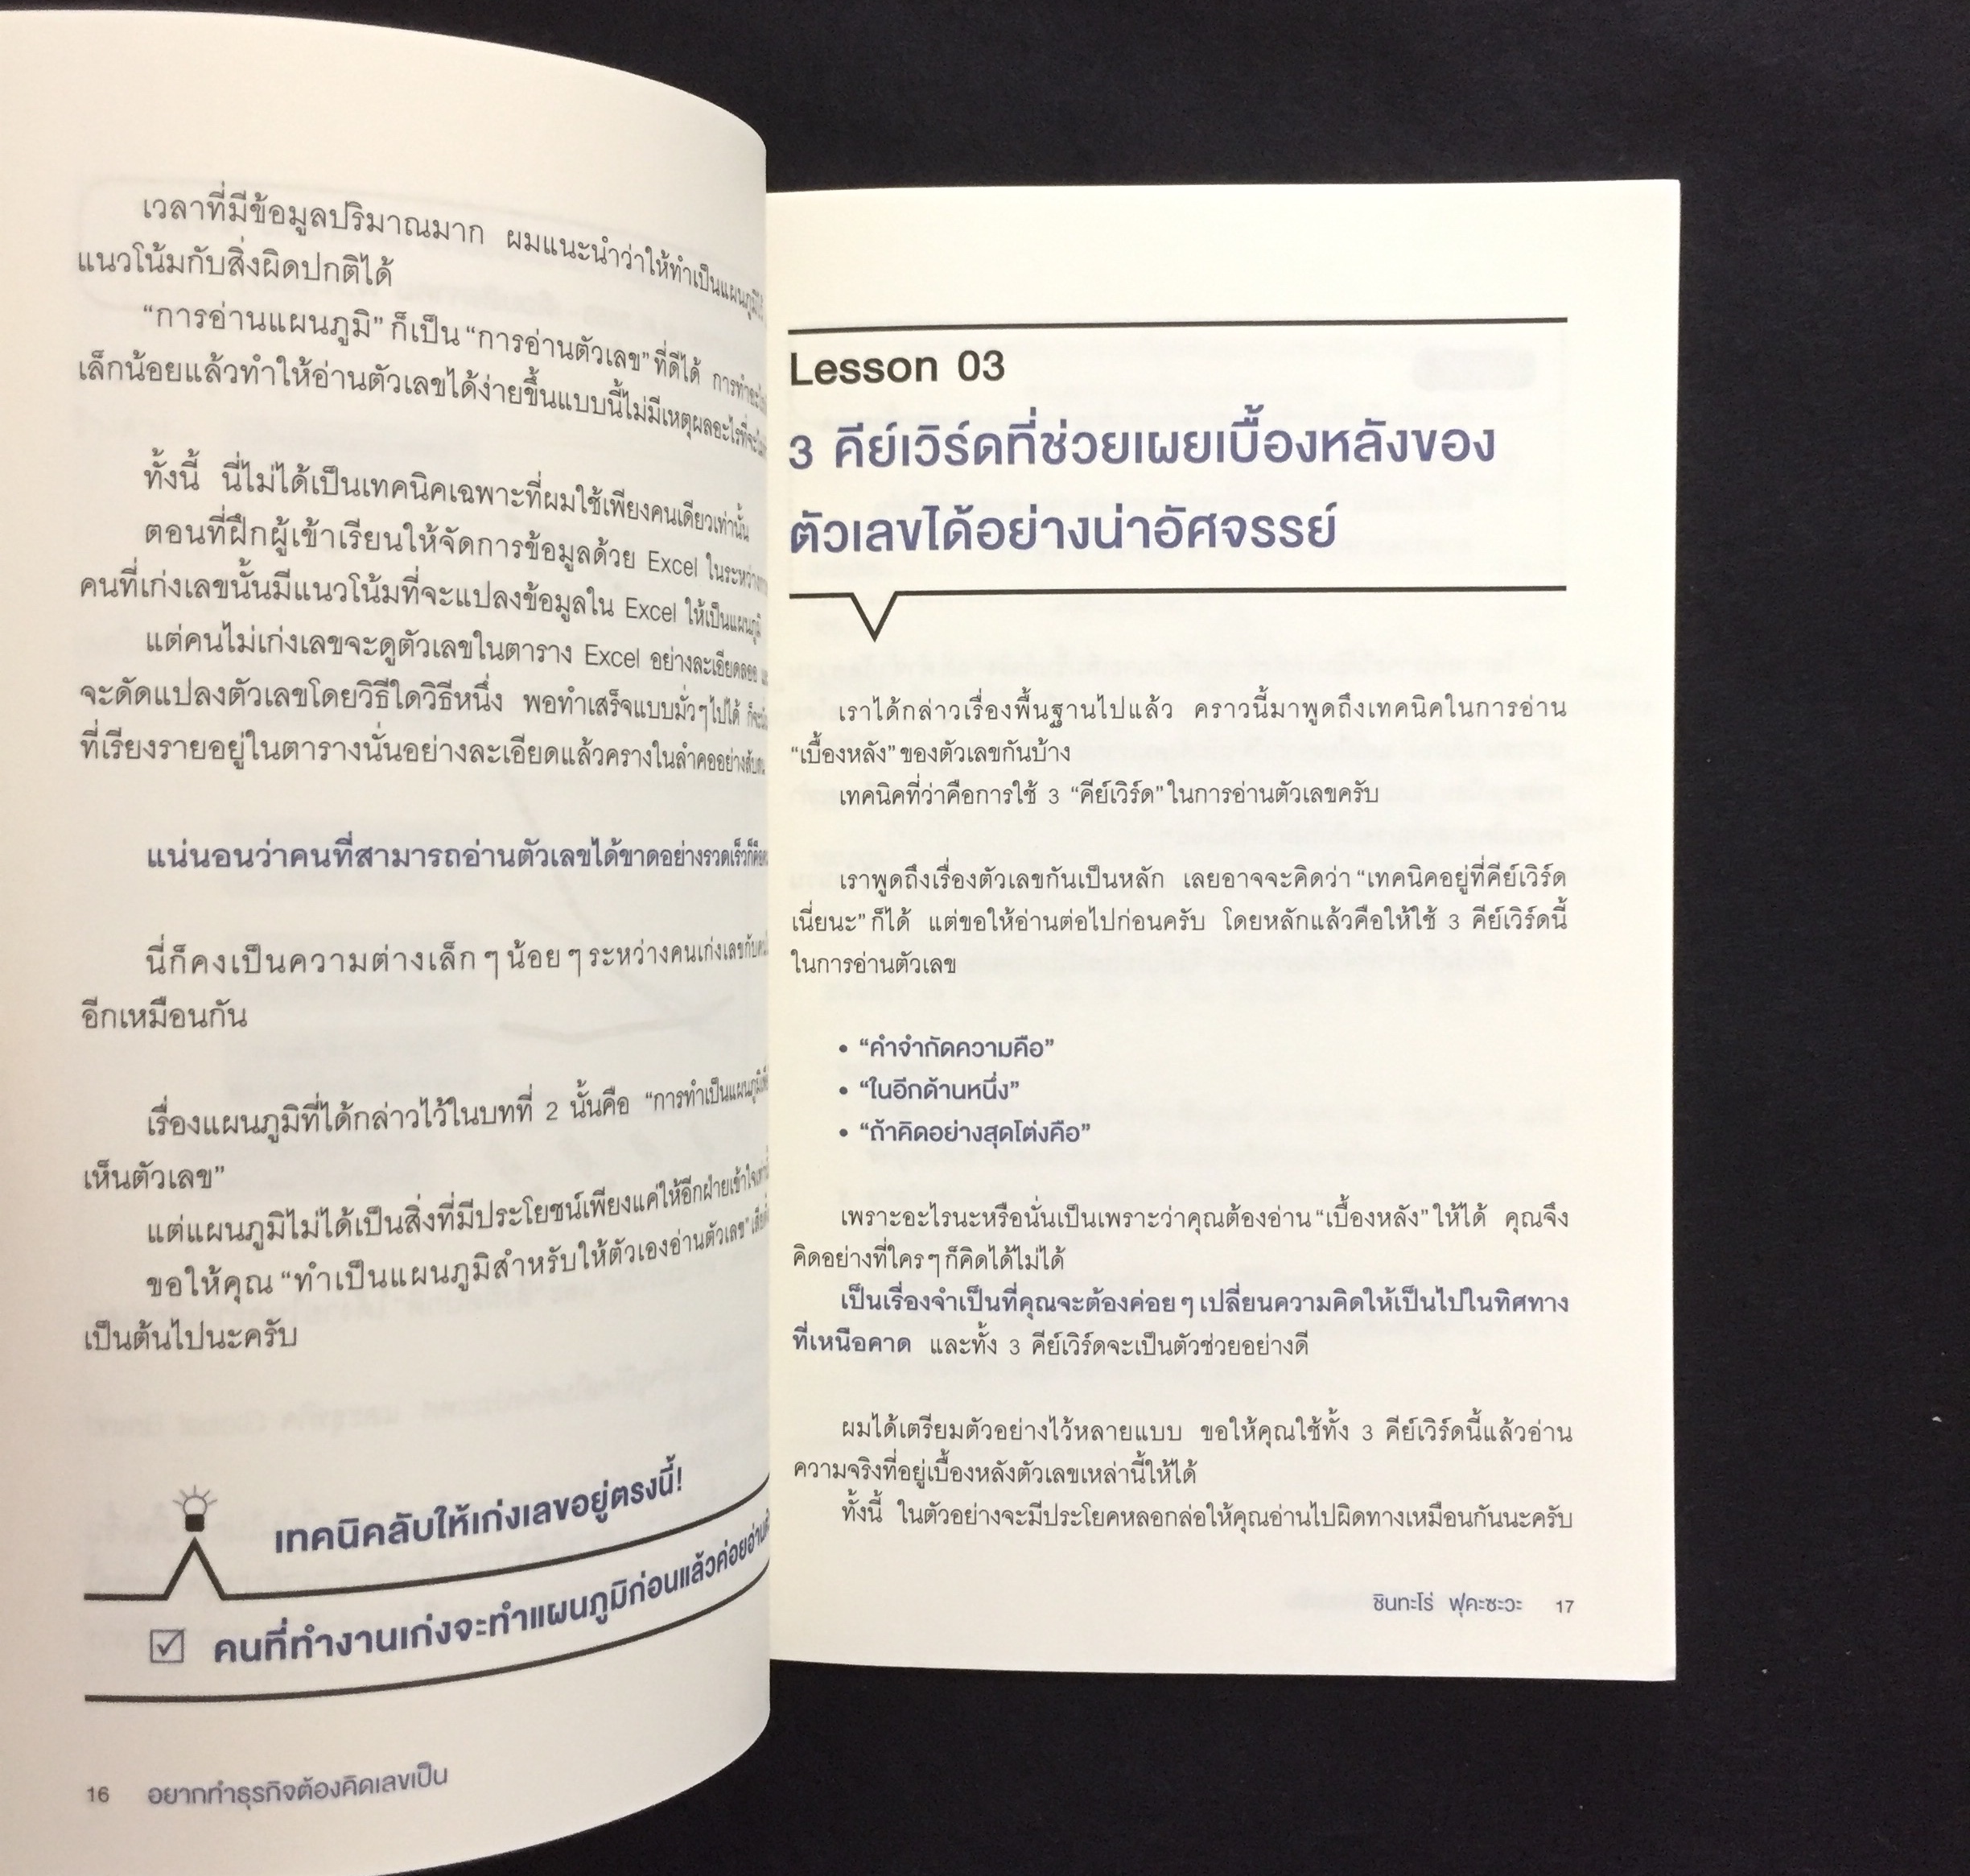 เวลาที่มีข้อมูลปริมาณมาก ผมแนะนำว่าให้ทำเป็นแผนภูมิ
แนวโน้มกับสิ่งผิดปกติได้
“การอ่านแผนภูมิ” ก็เป็น “การอ่านตัวเลข” ที่ดีได้ การทำ
เล็กน้อยแล้วทำให้อ่านตัวเลขได้ง่ายขึ้นแบบนี้ไม่มีเหตุผลอะไรที่จะ
ทั้งนี้ นี่ไม่ได้เป็นเทคนิคเฉพาะที่ผมใช้เพียงคนเดียวเท่านั้น
ตอนที่ฝึกผู้เข้าเรียนให้จัดการข้อมูลด้วย Excel ในระหว่าง
คนที่เก่งเลขนั้นมีแนวโน้มที่จะแปลงข้อมูลใน Excel ให้เป็นแผนภูมิ
แต่คนไม่เก่งเลขจะดูตัวเลขในตาราง Excel อย่างละเอียดลออ
จะดัดแปลงตัวเลขโดยวิธีใดวิธีหนึ่ง พอทำเสร็จแบบมั่วๆไปได้
ที่เรียงรายอยู่ในตารางนั่นอย่างละเอียดแล้วครางในลำคออย่าง
แน่นอนว่าคนที่สามารถอ่านตัวเลขได้ขาดอย่างรวดเร็วก็คือ
นี่ก็คงเป็นความต่างเล็กๆน้อยๆระหว่างคนเก่งเลขกับ
อีกเหมือนกัน
เรื่องแผนภูมิที่ได้กล่าวไว้ในบทที่ 2 นั้นคือ “การทำเป็นแผนภูมิ
เห็นตัวเลข”
แต่แผนภูมิไม่ได้เป็นสิ่งที่มีประโยชน์เพียงแค่ให้อีกฝ่ายเข้าใจ
ขอให้คุณ “ทำเป็นแผนภูมิสำหรับให้ตัวเองอ่านตัวเลข”
เป็นต้นไปนะครับ
เทคนิคลับให้เก่งเลขอยู่ตรงนี้!
คนที่ทำงานเก่งจะทำแผนภูมิก่อนแล้วค่อยอ่าน
16 อยากทำธุรกิจต้องคิดเลขเป็น
Lesson 03
3 คีย์เวิร์ดที่ช่วยเผยเบื้องหลังของ
ตัวเลขได้อย่างน่าอัศจรรย์
เราได้กล่าวเรื่องพื้นฐานไปแล้ว คราวนี้มาพูดถึงเทคนิคในการอ่าน
“เบื้องหลัง” ของตัวเลขกันบ้าง
เทคนิคที่ว่าคือการใช้ 3 “คีย์เวิร์ด” ในการอ่านตัวเลขครับ
เราพูดถึงเรื่องตัวเลขกันเป็นหลัก เลยอาจจะคิดว่า “เทคนิคอยู่ที่คีย์เวิร์ด
เนี่ยนะ” ก็ได้ แต่ขอให้อ่านต่อไปก่อนครับ โดยหลักแล้วคือให้ใช้ 3 คีย์เวิร์ดนี้
ในการอ่านตัวเลข
• “คำจำกัดความคือ”
• “ในอีกด้านหนึ่ง”
• “ถ้าคิดอย่างสุดโต่งคือ”
เพราะอะไรนะหรือนั่นเป็นเพราะว่าคุณต้องอ่าน “เบื้องหลัง” ให้ได้ คุณจึง
คิดอย่างที่ใครๆก็คิดได้ไม่ได้
เป็นเรื่องจำเป็นที่คุณจะต้องค่อยๆเปลี่ยนความคิดให้เป็นไปในทิศทาง
ที่เหนือคาด และทั้ง 3 คีย์เวิร์ดจะเป็นตัวช่วยอย่างดี
ผมได้เตรียมตัวอย่างไว้หลายแบบ ขอให้คุณใช้ทั้ง 3 คีย์เวิร์ดนี้แล้วอ่าน
ความจริงที่อยู่เบื้องหลังตัวเลขเหล่านี้ให้ได้
ทั้งนี้ ในตัวอย่างจะมีประโยคหลอกล่อให้คุณอ่านไปผิดทางเหมือนกันนะครับ
ชินทะโร่ ฟุคะซะวะ 17